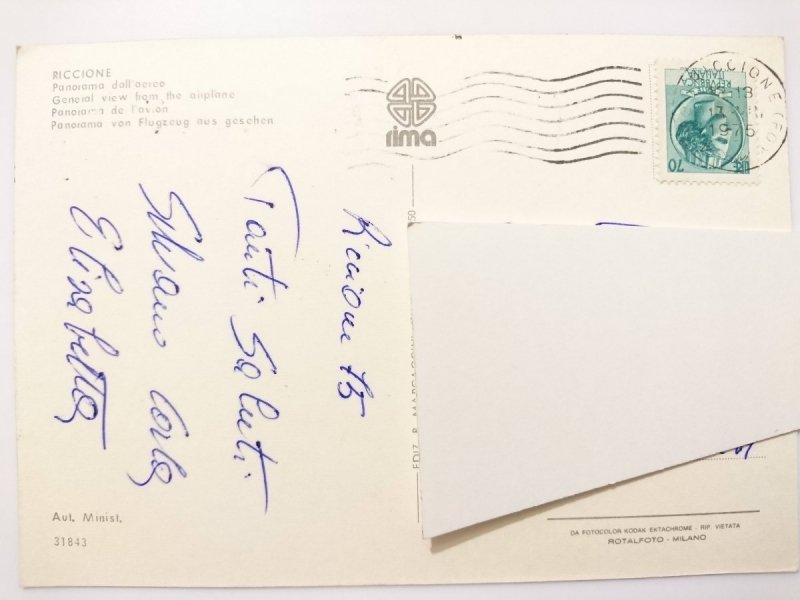 RICCIONE
Panorama dall'aereo
General view from the airplane
Panorama de l'avion
Panorama von Flugzeug aus gesehen
rima
RICCIONE
1975
REPUBBLICA
ITALIANA
LIRE 70
Riccione 75
Tanti Saluti
Silvano Carla
Elisabetta
EDIZ. R.
Aut. Minist.
31843
DA FOTOCOLOR KODAK EKTACHROME - RIP. VIETATA
ROTALFOTO - MILANO